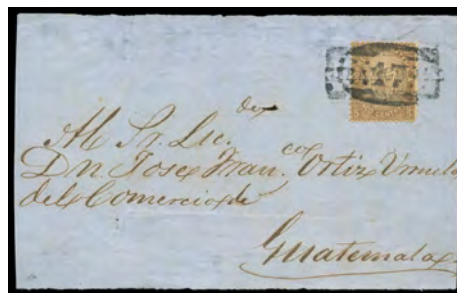 Al Sr. Lic.do
Dn. Jose Fran.co Ortiz Urruela
del Comercio de
Guatemala